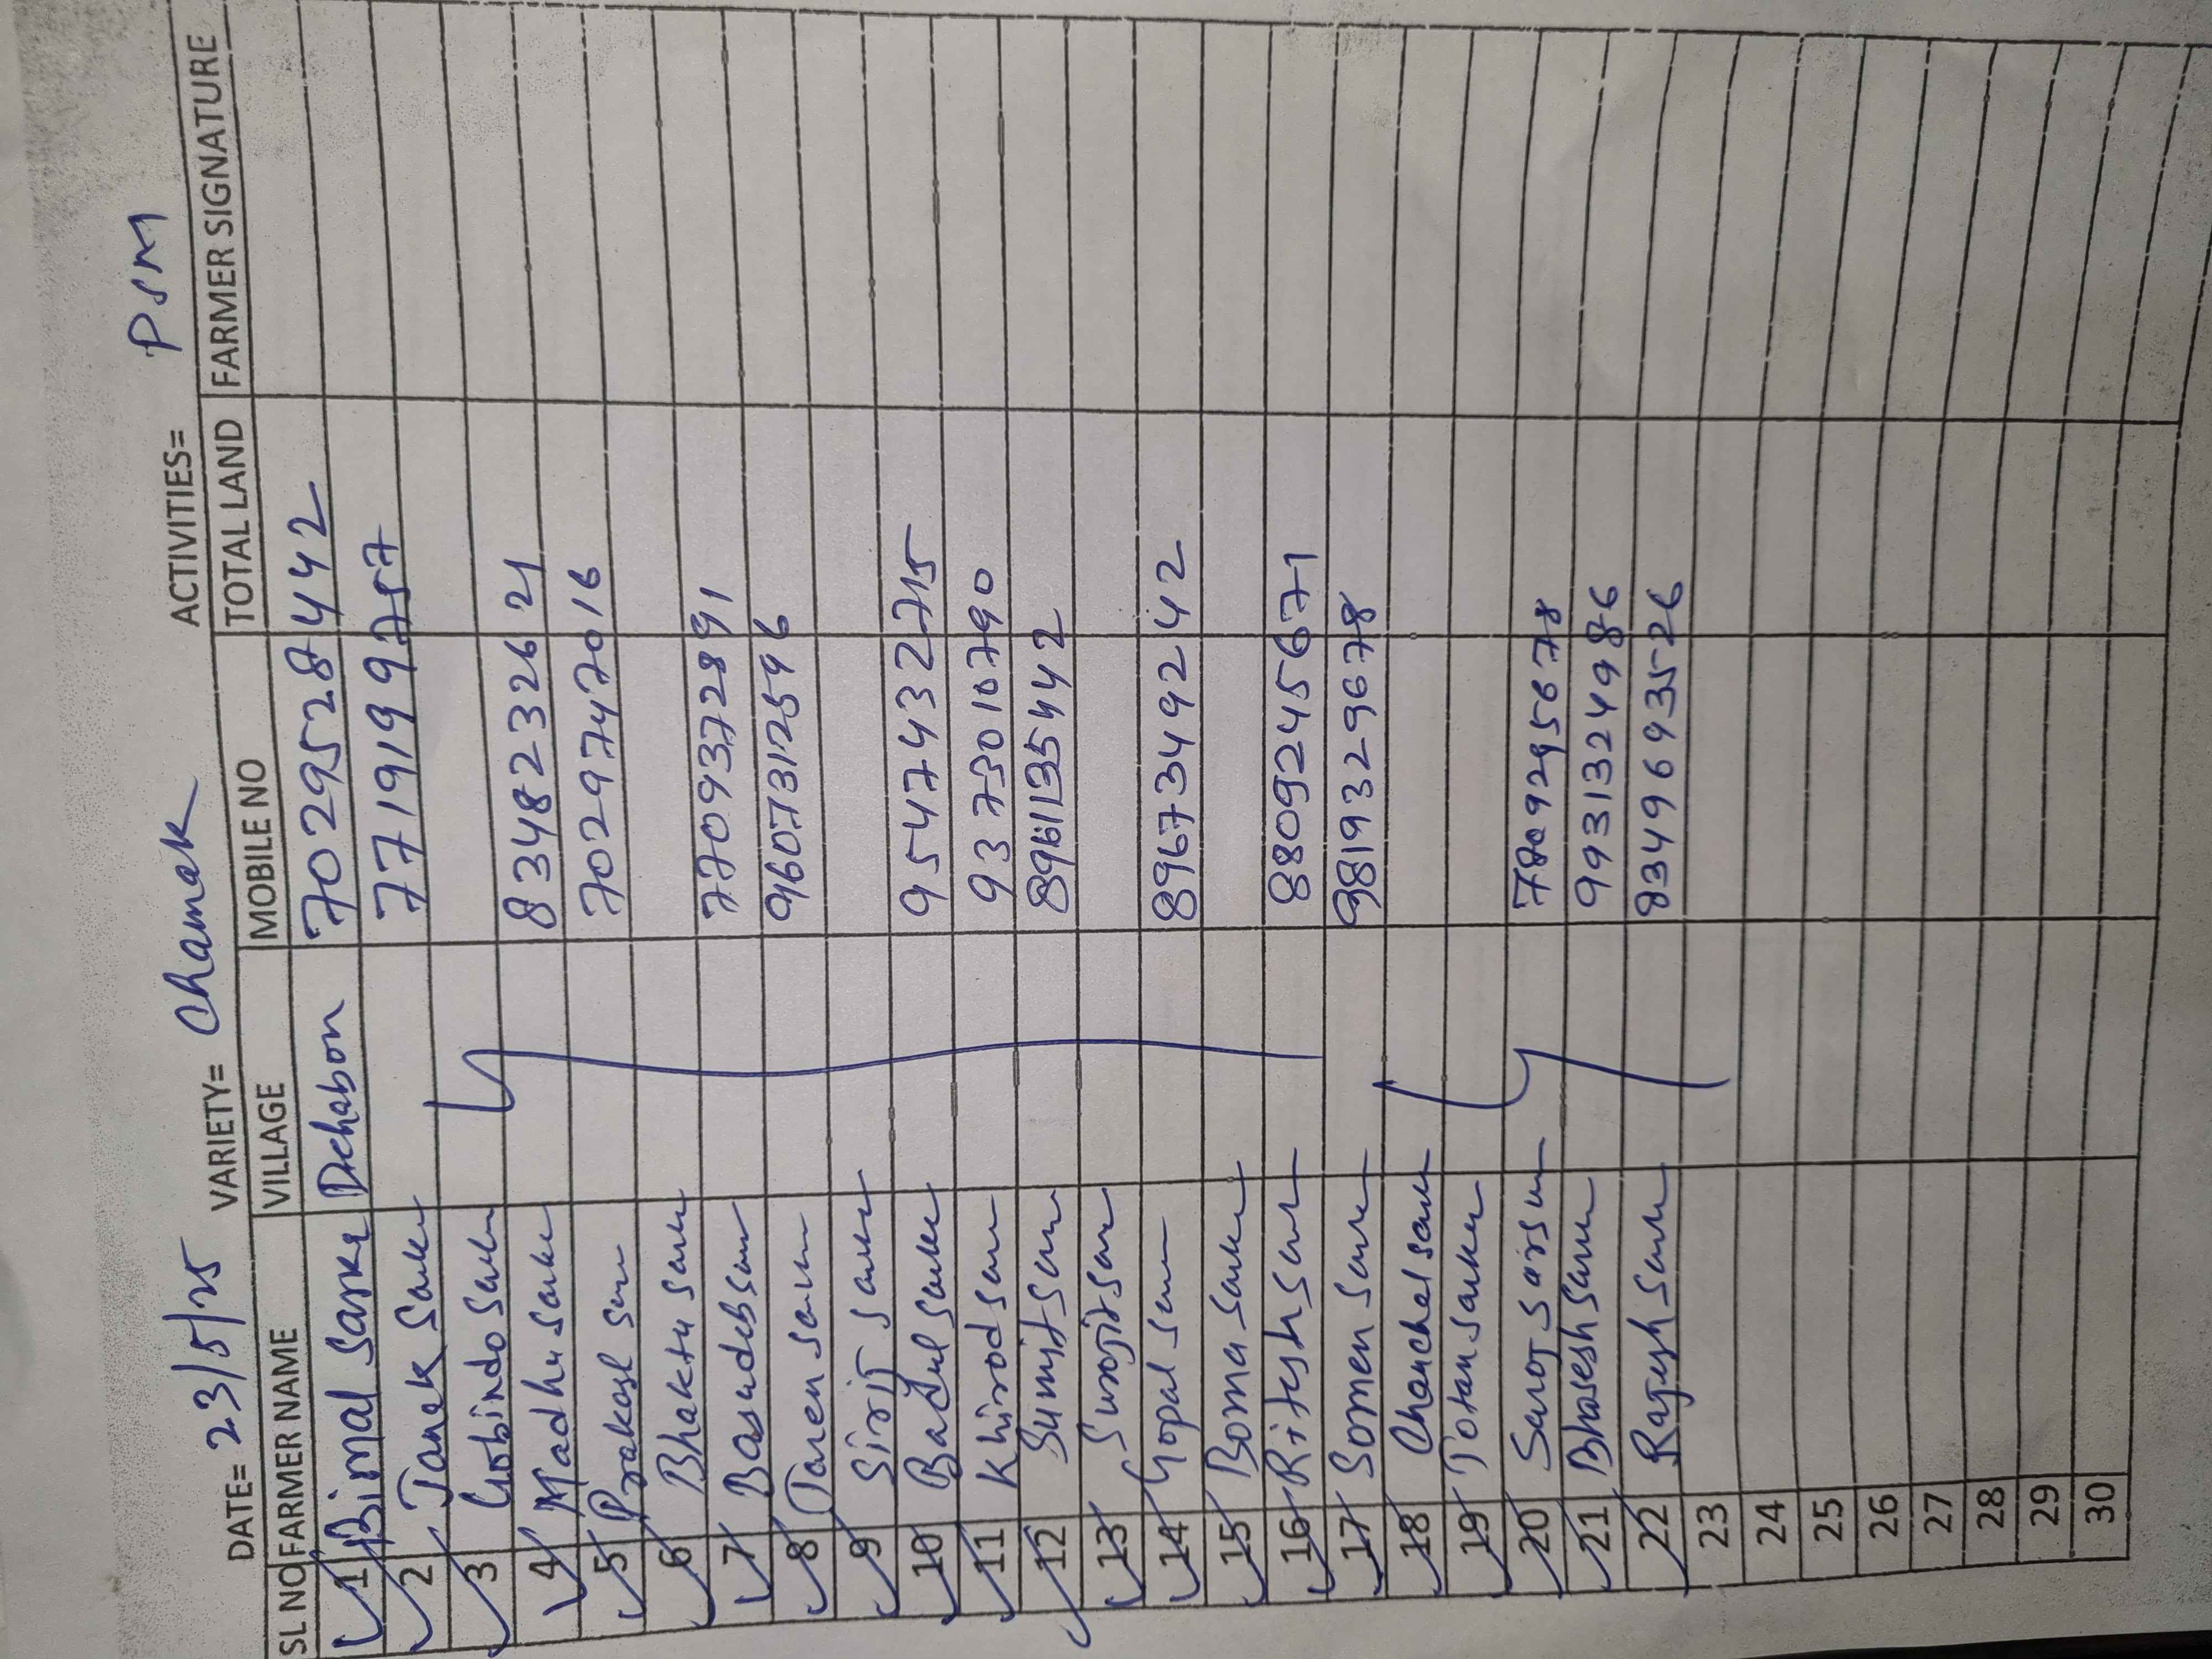 DATE= 23/5/25 VARIETY= Chamak ACTIVITIES= PSM
SL NO FARMER NAME VILLAGE MOBILE NO TOTAL LAND FARMER SIGNATURE
1 Bimal Sarke Dehabon 7029528442
2 Tanek Sarker 7719199757
3 Gobindo Sarker
4 Madhu Sarker 8348232621
5 Prakash 7029747016
6 Bhaktu Sarker
7 Basudeb 7709372891
8 Taren 9607312596
9 Sirij Sarker
10 Badul Sarker 9547432715
11 Khirod 9373010790
12 Sumit 8961135442
13 Surojit
14 Gopal 8967349242
15 Boma Sarker
16 Ritesh 8809245671
17 Somen 9819329678
18 Chanchal
19 Totan Sarker
20 Saroj 7809295678
21 Bhabesh 9931324986
22 Rajesh 8349693526
23
24
25
26
27
28
29
30